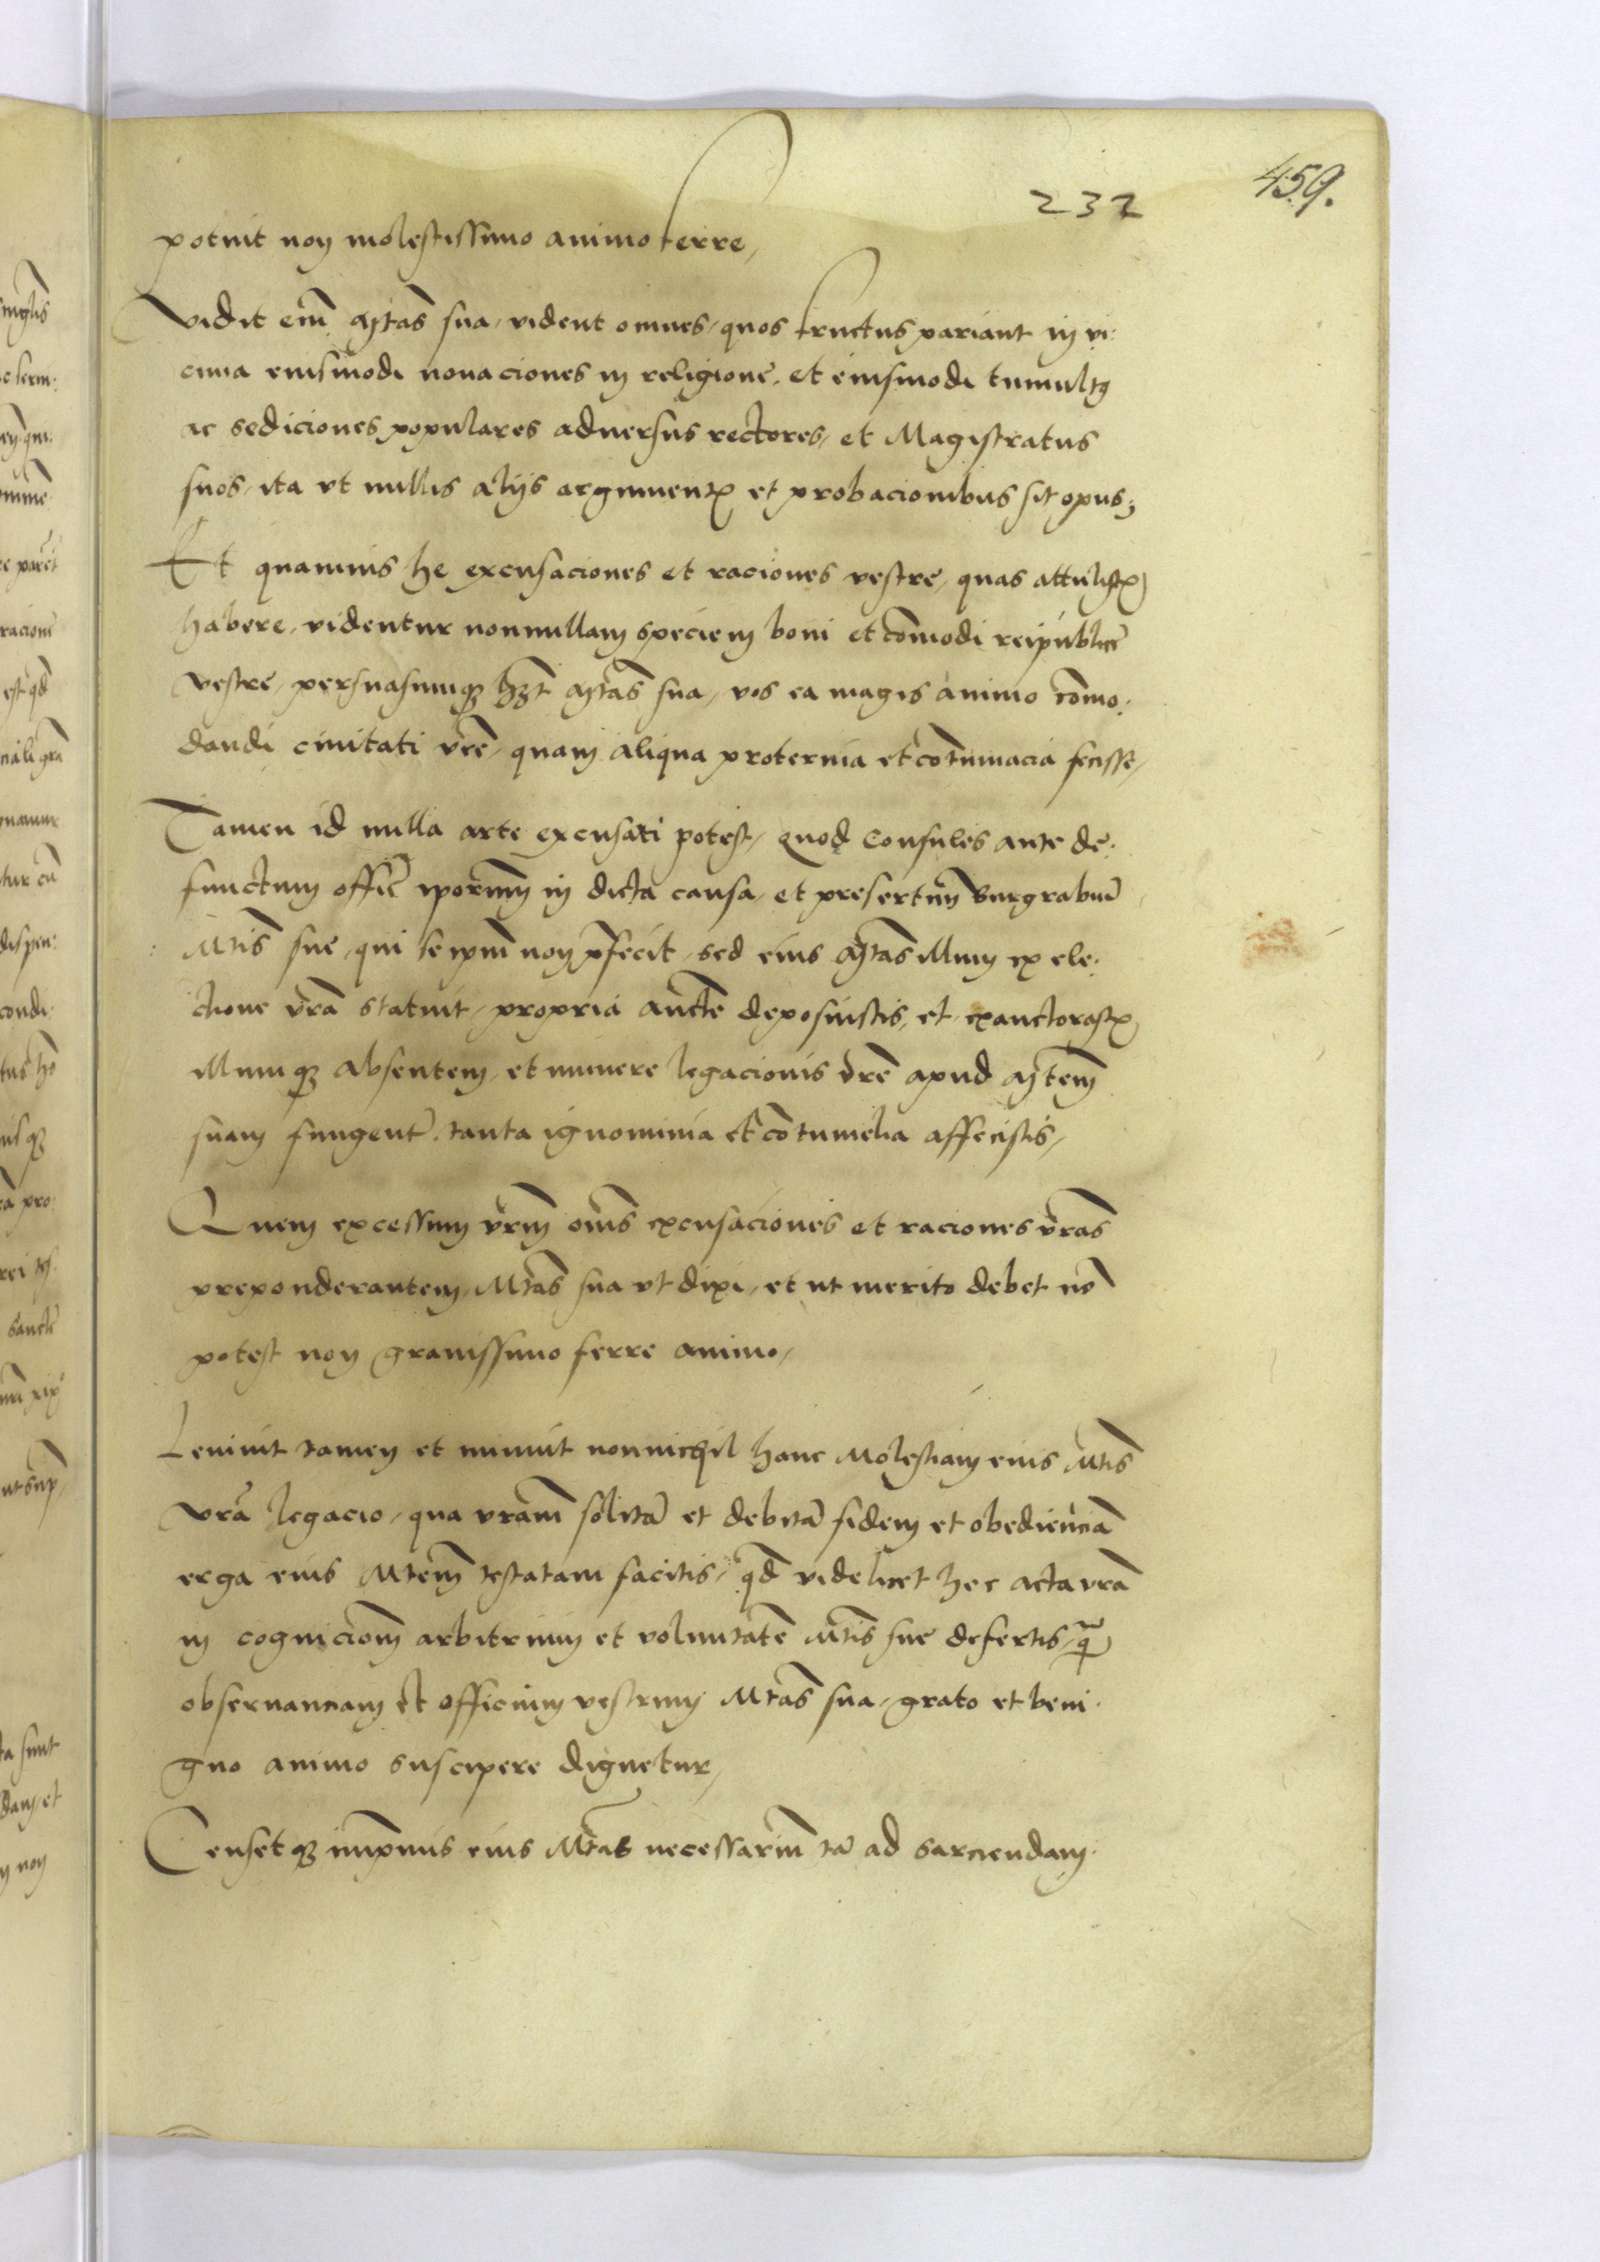 459.
232
potuit non molestissimo animo ferre,
Vidit em̄ Mtas sua, vident omnes, quos fructus pariant in vi:
cinia eiusmodi novaciones in religione, et eiusmodi tumultus
ac sediciones populares adversus rectores, et Magistratus
suos, ita vt nullis alijs argumentis et probacionibus sit opus,
Et quamuis he excusaciones et raciones vestre, quas attulistis
habere videntur nonnullam speciem boni et com̄odi reipublice
vestre, persuasumq3 h3t Mtas sua, vos ea magis animo com̄o:
dandi ciuitati vr̄e, quam aliqua proteruia et contumacia fecisse,
Tamen id nulla arte excusari potest, quod Consules ante de:
functum offic̄ ipor̄um in dicta causa, et presertim Burgrabiū
Mtis sue, qui se ipm̄ non p̄fecit, sed eius Mtas illum ex ele:
ctione vr̄a statuit, propria aucte deposuistis, et exauctorastis
illumq3 absentem, et munere legacionis vr̄e apud Mtem
suam fungent̄, tanta ignominia et contumelia affecistis,
Quem excessum vr̄m om̄s excusaciones et raciones vr̄as
preponderantem, Mtas sua vt dixi, et ut merito debet nō
potest non grauissimo ferre animo,
Leniuit tamen et minuit nonnichil hanc Molestiam eius Mtis
vr̄a legacio, qua vr̄am solitā et debitā fidem et obedienciā
erga eius Mtem testatam facitis, qd̄ videlicet hec acta vr̄a
in cognicionē arbitrium et voluntatē Mtis sue defertis, quā
obseruanciam et officium vestrum Mtas sua, grato et beni:
gno animo suscipere dignetur,
Censetq3 imprimis eius Mtas necessarium tā ad sarciendam